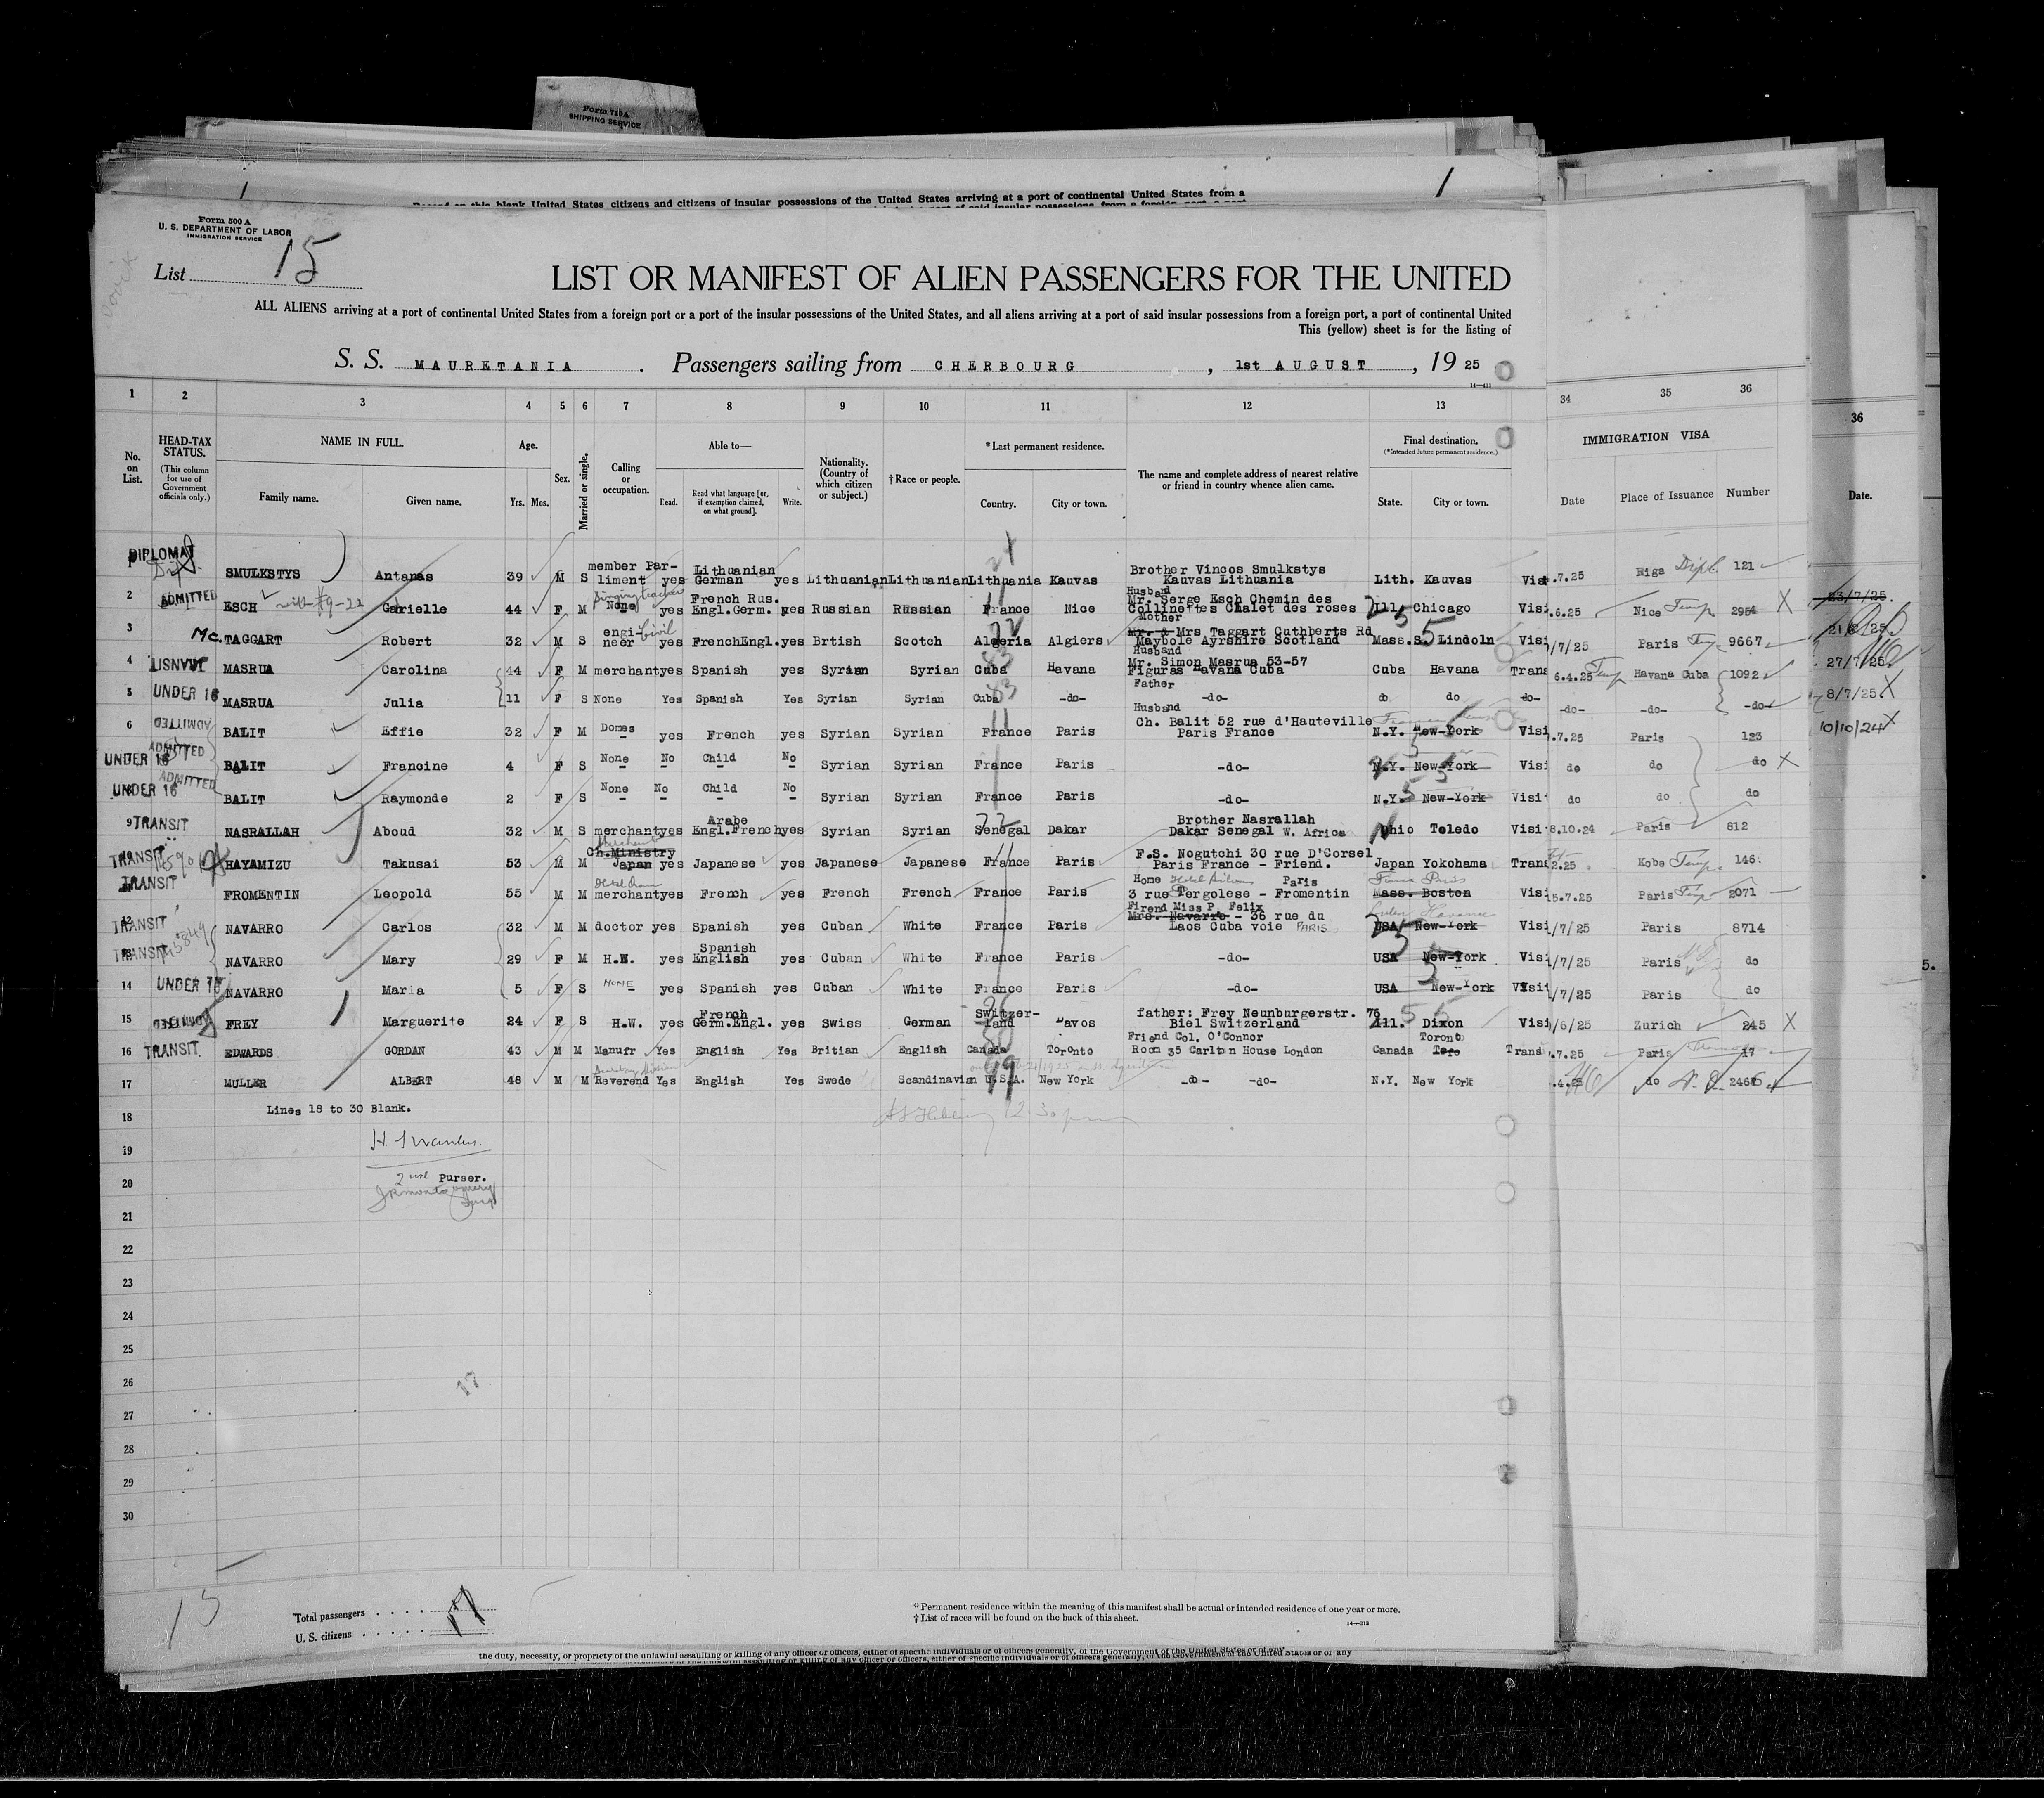 Form 789A
SHIPPING SERVICE
1 1
on this blank United States citizens and citizens of insular possessions of the United States arriving at a port of continental United States from a
Form 500 A
U. S. DEPARTMENT OF LABOR
IMMIGRATION SERVICE
List 15
LIST OR MANIFEST OF ALIEN PASSENGERS FOR THE UNITED
ALL ALIENS arriving at a port of continental United States from a foreign port or a port of the insular possessions of the United States, and all aliens arriving at a port of said insular possessions from a foreign port, a port of continental United
This (yellow) sheet is for the listing of
S. S. MAURETANIA. Passengers sailing from CHERBOURG, 1st AUGUST, 19 25
1 2 3 4 5 6 7 8 9 10 11 12 13 34 35 36
No. on List.
HEAD-TAX STATUS.
(This column for use of Government officials only.)
NAME IN FULL.
Family name. Given name.
Age.
Yrs. Mos.
Sex.
Married or single.
Calling or occupation.
Able to—
Read. Read what language [or, if exemption claimed, on what ground]. Write.
Nationality. (Country of which citizen or subject.)
†Race or people.
*Last permanent residence.
Country. City or town.
The name and complete address of nearest relative or friend in country whence alien came.
Final destination.
(*Intended future permanent residence.)
State. City or town.
IMMIGRATION VISA
Date Place of Issuance Number
36
Date.
1 DIPLOMAT SMULKSTYS Antanas 39 M S member Par-liment yes Lithuanian German yes Lithuanian Lithuanian Lithuania Kauvas Brother Vincos Smulkstys Kauvas Lithuania Lith. Kauvas Vis .7.25 Riga Dipl. 121
2 ADMITTED ESCH with #9-22 Garielle 44 F M Singing teacher None yes French Rus. Engl.Germ. yes Russian Russian France Nice Husband Mr. Serge Esch Chemin des Collinettes Chalet des roses Ill. Chicago Visi .6.25 Nice Temp 2954 X 23/7/25.
3 Mc. TAGGART Robert 32 M S engi-neer Civil yes FrenchEngl. yes Brtish Scotch Algeria Algiers Mother Mr. & Mrs Taggart Cuthberts Rd Maybole Ayrshire Scotland Mass. S. Lindoln Visi /7/25 Paris 9667
4 TRANSIT MASRUA Carolina 44 F M merchant yes Spanish yes Syrian Syrian Cuba Havana Husband Mr. Simon Masrua 53-57 Figuras Havana Cuba Cuba Havana Trans 6.4.25 Temp Havana Cuba 1092 27/7/25.
5 UNDER 16 MASRUA Julia 11 F S None Yes Spanish Yes Syrian Syrian Cuba -do- Father -do- do do -do- -do- -do- -do- 8/7/25 X
6 ADMITTED BALIT Effie 32 F M Domes yes French yes Syrian Syrian France Paris Husband Ch. Balit 52 rue d'Hauteville Paris France N.Y. New-York Visi .7.25 Paris 123 10/10/24 X
UNDER 16 ADMITTED BALIT Francine 4 F S None No Child No Syrian Syrian France Paris -do- N.Y. New-York Visi do do do X
UNDER 16 ADMITTED BALIT Raymonde 2 F S None No Child No Syrian Syrian France Paris -do- N.Y. New-York Visit do do do
9 TRANSIT NASRALLAH Aboud 32 M S merchant yes Arabe Engl.French yes Syrian Syrian Senegal Dakar Brother Nasrallah Dakar Senegal W. Africa Ohio Toledo Visi 8.10.24 Paris 812
TRANSIT HAYAMIZU Takusai 53 M M Merchant Ch.Ministry Japan yes Japanese yes Japanese Japanese France Paris F.S. Nogutchi 30 rue D'Corsel Paris France - Friend. Japan Yokohama Trans 2.25 Kobe Temp. 146
TRANSIT FROMENTIN Leopold 55 M M merchant yes French yes French French France Paris Home Paris 3 rue Pergolese - Fromentin Mass. Boston Visi 5.7.25 Paris Temp 2071
12 TRANSIT NAVARRO Carlos 32 M M doctor yes Spanish yes Cuban White France Paris Firend Miss P. Felix Mrs. Navarro - 36 rue du Laos Cuba voie PARIS USA New-York Visi /7/25 Paris 8714
TRANSIT NAVARRO Mary 29 F M H.W. yes Spanish English yes Cuban White France Paris -do- USA New-York Visi /7/25 Paris do
14 UNDER 16 NAVARRO Maria 5 F S NONE yes Spanish yes Cuban White France Paris -do- USA New-York Visit /7/25 Paris do
15 ADMITTED FREY Marguerite 24 F S H.W. yes French Germ.Engl. yes Swiss German Switzer-land Davos father: Frey Neunburgerstr. 76 Biel Switzerland Ill. Dixon Visi /6/25 Zurich 245 X
16 TRANSIT. EDWARDS GORDAN 43 M M Manufr Yes English Yes Britian English Canada Toronto Friend Col. O'Connor Room 35 Carlton House London Canada Toronto Trand .7.25 Paris 17
17 MULLER ALBERT 48 M M Reverend Yes English Yes Swede Scandinavian U.S.A. New York -do- -do- N.Y. New York .4.25 do 2466
18 Lines 18 to 30 Blank.
12.30 pm
19
20 2nd Purser.
21
22
23
24
25
26 17
27
28
29
30
15
Total passengers . . . . 17
U. S. citizens . . . . .
*Permanent residence within the meaning of this manifest shall be actual or intended residence of one year or more.
†List of races will be found on the back of this sheet.
14—212
the duty, necessity, or propriety of the unlawful assaulting or killing of any officer or officers, either of specific individuals or of officers generally, of the Government of the United States or of any